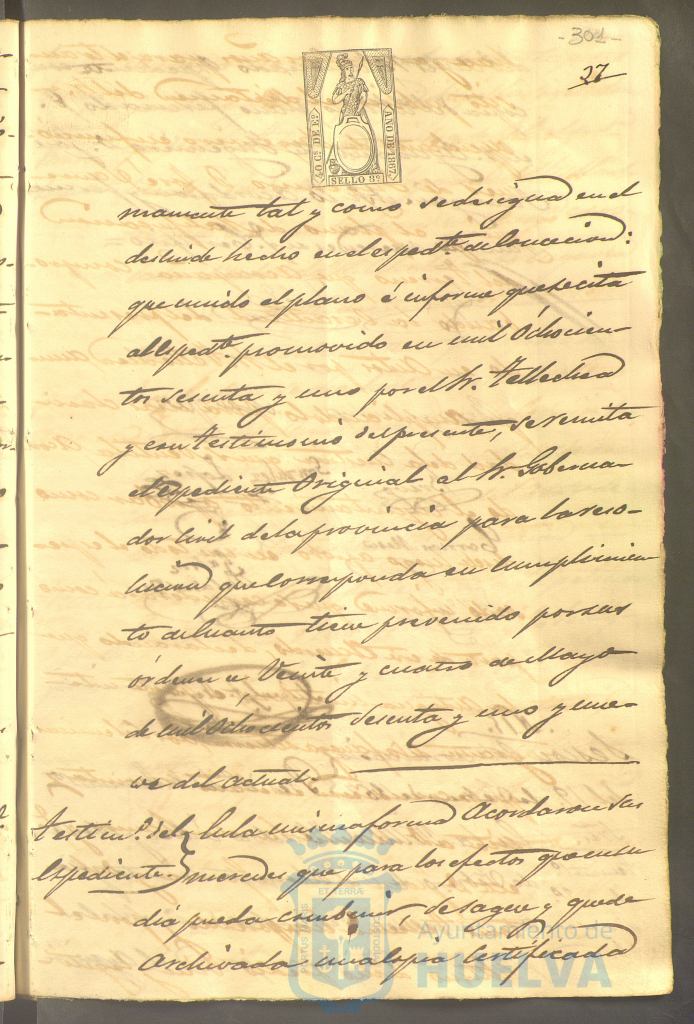 - 301 -
27
40 Cs. DE Eo.
AÑO DE 1867.
SELLO 9º.
mamente tal y como se designa en el
deslinde hecho en el espedte. de Concecion:
que unido el plano é informe que se cita
al Espedte. promovido en mil Ochocien-
tos sesenta y uno por el Sr. Tellechea
y con testimonio del presente, se remita
el espediente Original al Sr. Goberna-
dor Civil de la provincia para la reso-
lucion que Corresponda en Cumplimien-
to de cuanto tiene prevenido por sus
órdenes de Veinte y cuatro de Mayo
de mil Ochocientos Sesenta y uno y nue-
ve del actual.
testimo. del
Espediente.
En la misma forma Acordaron Sus
mercedes que para los efectos que en su
dia pueda combenir, se saque y quede
Archivada una copia Certificada
Ayuntamiento de
HUELVA